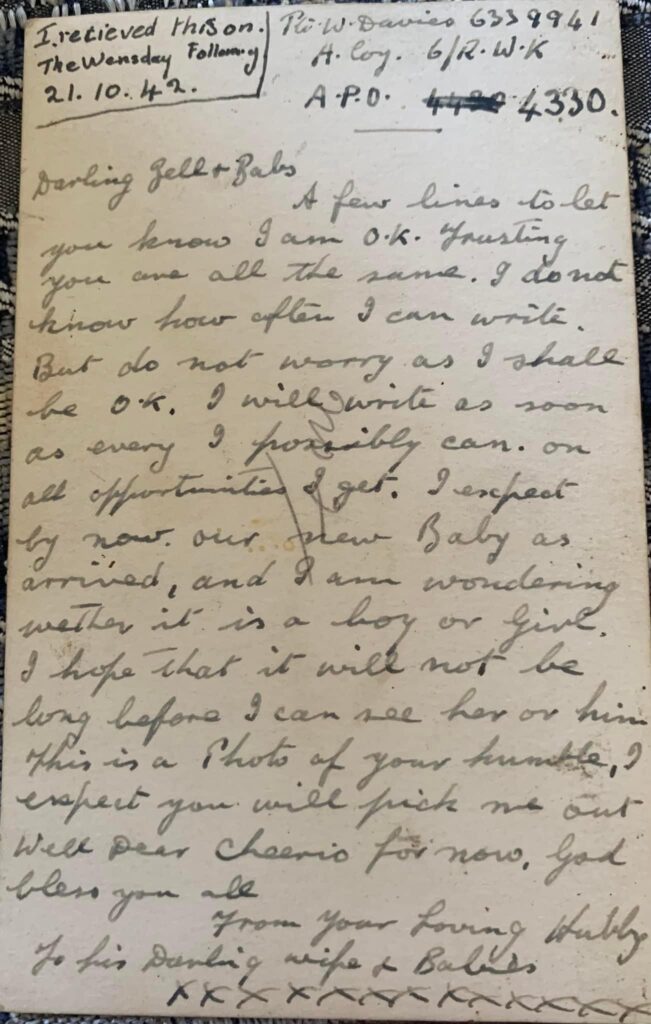 I. retieved this on.
The Wensday Following
21. 10. 42.
Pte W. Davies 6339941
A. Coy. 6/R.W.K
A.P.O. 4330.
Darling Zell & Babs
A few lines to let
you know I am O.K. Trusting
you are all the same. I do not
know how often I can write.
But do not worry as I shall
be O.K. I will write as soon
as every I possibly can. on
all opportunities I get. I expect
by now. our new Baby as
arrived, and I am wondering
wether it is a boy or Girl.
I hope that it will not be
long before I can see her or him
This is a Photo of your humble, I
expect you will pick me out
Well Dear Cheerio for now. God
bless you all
From Your Loving Hubby
To his Darling wife & Babies
x x x x x x x x x x x x x